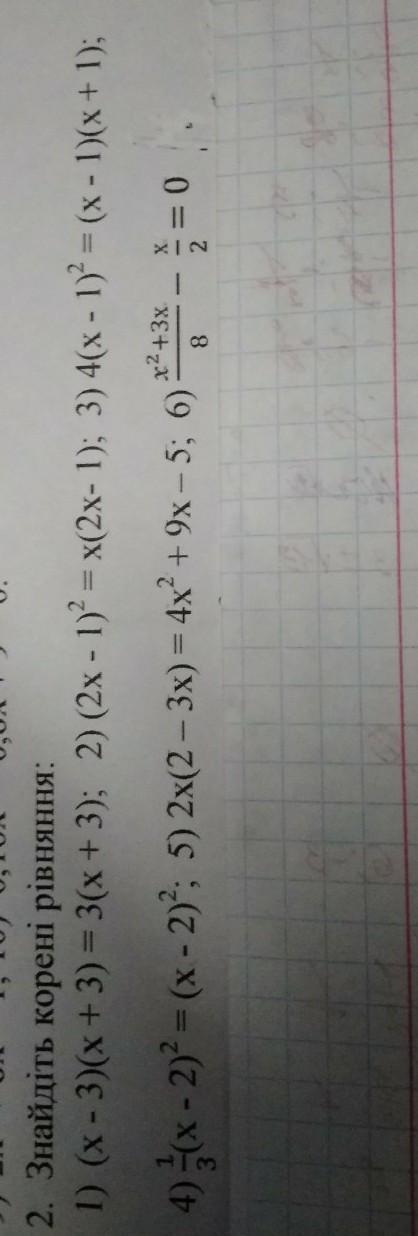 2. Знайдіть корені рівняння:
1) (x - 3)(x + 3) = 3(x + 3); 2) (2x - 1)² = x(2x- 1); 3) 4(x - 1)² = (x - 1)(x + 1);
4) \frac{1}{3}(x - 2)² = (x - 2)²; 5) 2x(2 – 3x) = 4x² + 9x – 5; 6) \frac{x²+3x}{8} − \frac{x}{2} = 0